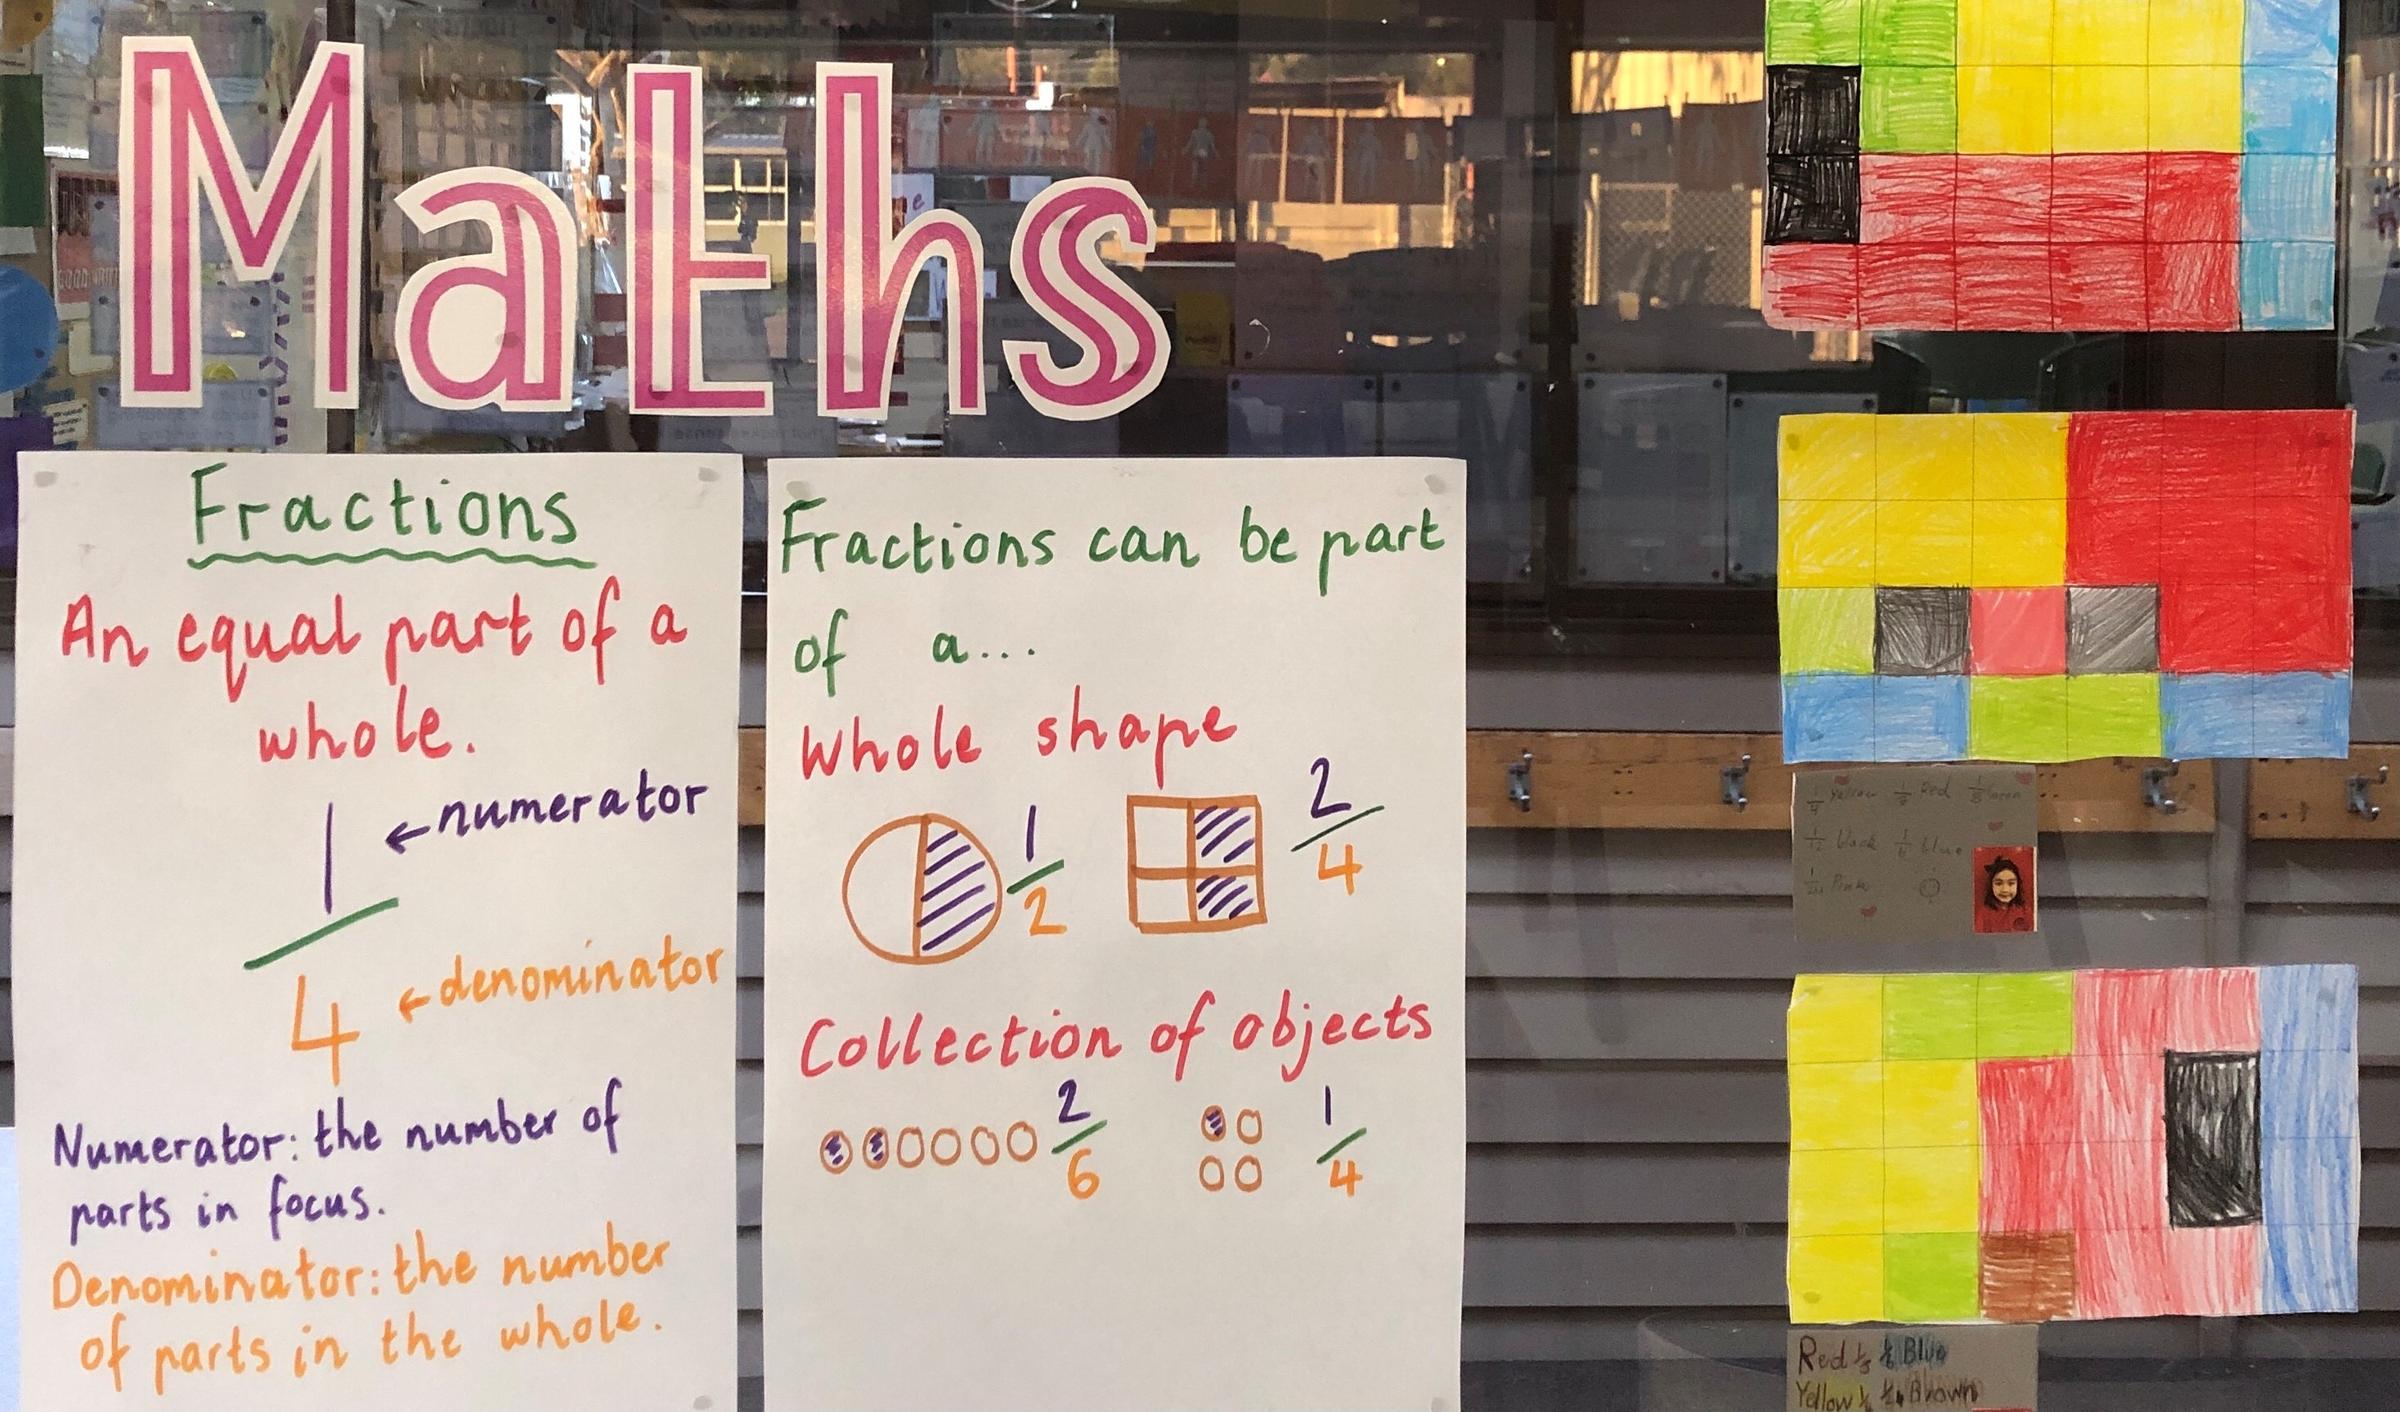 Maths
Fractions
An equal part of a
whole.
1 ← numerator
4 ← denominator
Numerator: the number of
parts in focus.
Denominator: the number
of parts in the whole.
Fractions can be part
of a...
Whole shape
1/2 2/4
Collection of objects
2/6 1/4
1/4 Yellow Red 1/8
1/12 black 1/6 blue
Pink
Red 1/3 1/6 Blue
Yellow 1/24 Brown